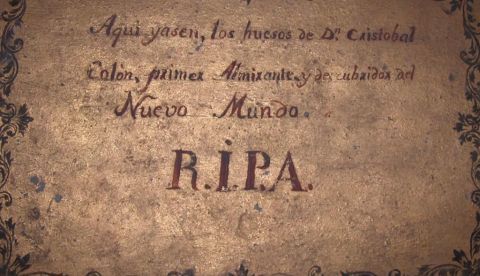 Aqui yasen, los huesos de Dn. Cristobal
Colòn, primer Almirante, y descubridor del
Nuevo Mundo.
R.I.P.A.